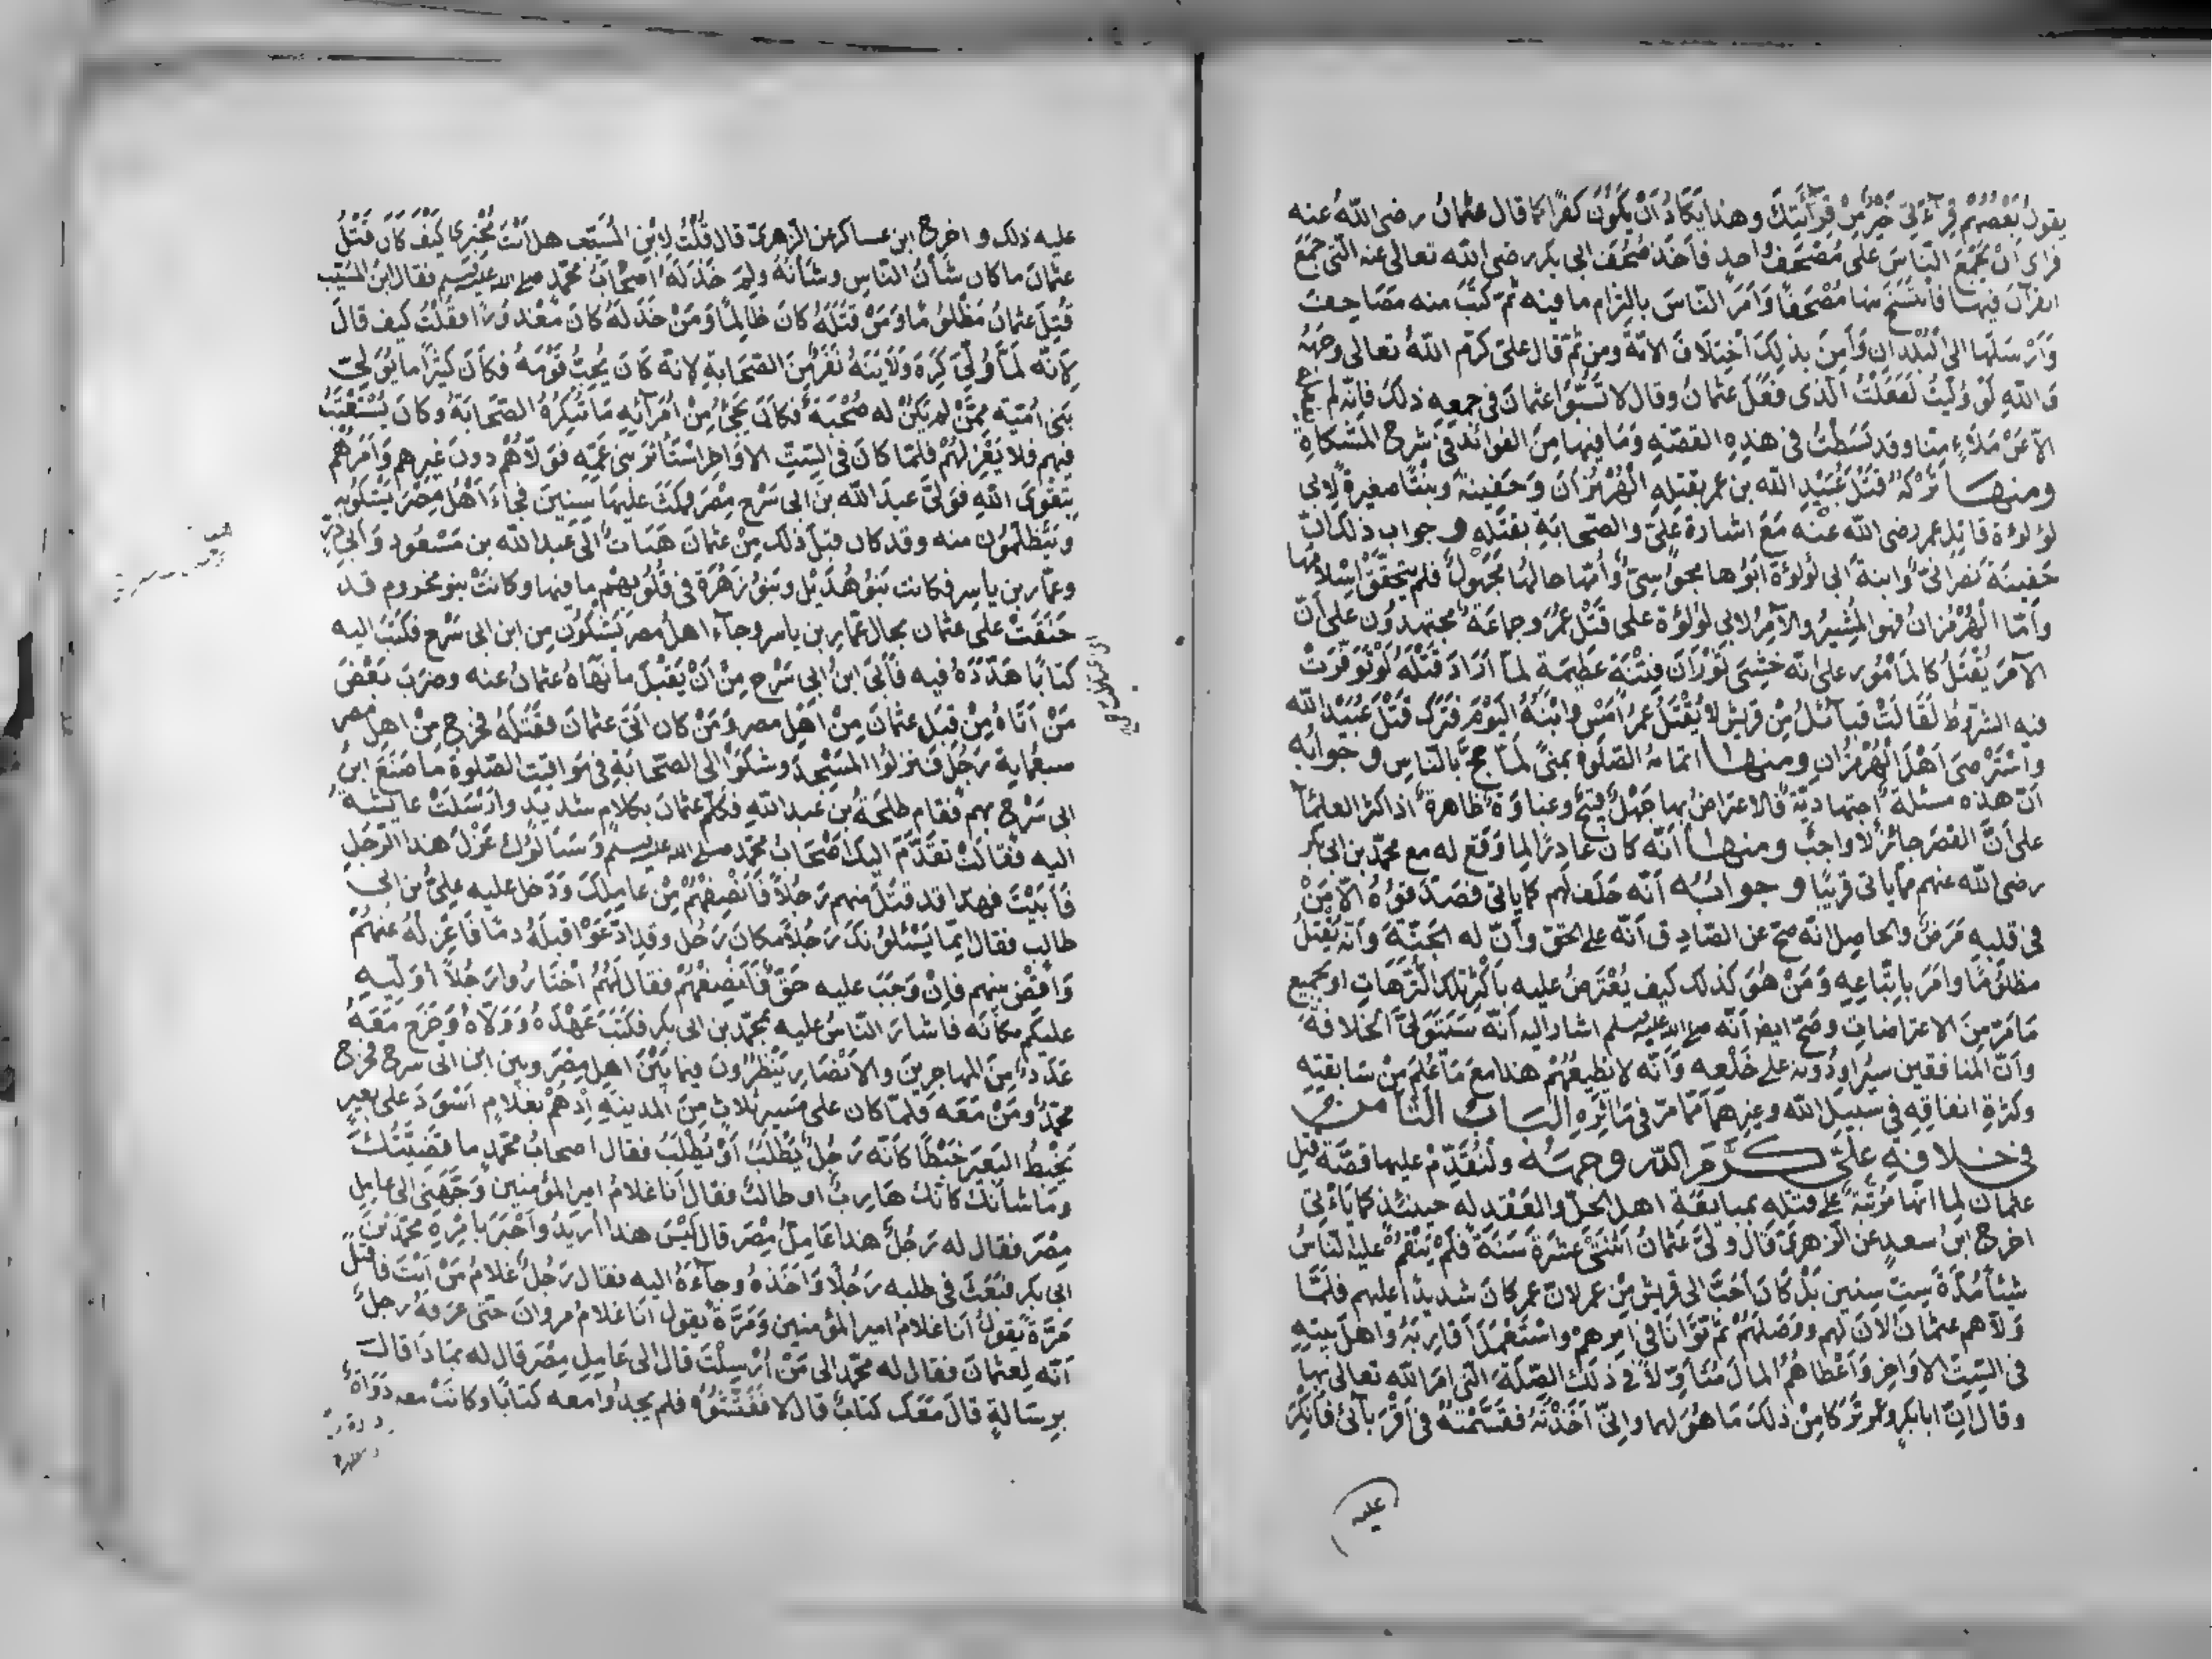 يقول بعضهم قرآءتي خير من قرآءتك وهذا يكاد ان يكون كفرا كما قال عثمان رضى الله عنه
فراى ان يجمع الناس على مصحف واحد فاخذ صحف ابى بكر رضى الله تعالى عنه التى جمع
القرآن فيها فانتسخ منها مصحفا وامر الناس بالزام ما فيه ثم كتب منه مصاحف
وارسلها الى البلدان وامن بذلك اختلاف الامة ومن ثم قال على كرم الله تعالى وجهه
والله لو وليت لفعلت الذى فعل عثمان وقال لا تسبوا عثمان فى جمعه ذلك فانه لم
الا عن ملاء منا وقد بسطت فى هذه القصة وما فيها من الفوائد فى شرح المشكاة
ومنها تركه قتل عبيد الله بن عمر بقتله الهرمزان وحفينة وبنتا صغيرة لابى
لؤلؤة قاتل عمر رضى الله عنه مع اشارة على والصحابة بقتله وجواب ذلك ان
حفينة نصرانى وابنة ابى لؤلؤة ابوها مجوسى وامها حالها مجهول فلم يتحقق اسلامها
واما الهرمزان فهو المشير والآمر لابى لؤلؤة على قتل عمر وجماعة مجتهدون على ان
الآمر يقتل كالمأمور على انه خشى ثوران فتنة عظيمة لما اراد قتله لو توفرت
فيه الشروط لقالت قبآئل من قريش لا يقتل عمر امس وابنه اليوم فترك قتل عبيد الله
واسترضى اهل الهرمزان ومنها اتمامه الصلوة بمنى لما حج بالناس وجوابه
ان هذه مسئلة اجتهادية فالاعتراض بها جهل قبيح وغباوة ظاهرة اذ اكثر العلمآ
على ان القصر جائز لا واجب ومنها انه كان غادرا لما وقع له مع محمد بن ابى بكر
رضى الله عنهم مما ياتى قريبا وجوابه انه حلف لهم كما ياتى فصدقوه الا من
فى قلبه مرض والحاصل انه صح عن الصادق انه على الحق وان له الجنة وانه يقتل
مظلوما وامر باتباعه ومن هو كذلك كيف يعترض عليه باكثر تلك الترهات او بجميع
ما مر من الاعتراضات وصح ايضا انه صلى الله عليه وسلم اشار اليه انه سيتولى الخلافة
وان المنافقين سيراودونه على خلعه وانه لا يطيعهم هذا مع ما علم من سابقيته
وكثرة انفاقه فى سبيل الله وغيرهما مما مر فى مآثره الباب الثامن
فى خلافة على كرم الله وجهه ولنقدم عليها قصة قتل
عثمان لما انها مرتبة على قتله بمبايعة اهل الحل والعقد له حينئذ كما ياءتى
اخرج ابن سعد عن الزهرى قال ولى عثمان اثنتى عشرة سنة فلم ينقم عليه الناس
شيئا مدة ست سنين بل كان احب الى قريش من عمر لان عمر كان شديدا عليهم فلما
ولاهم عثمان لان لهم ووصلهم ثم توانا فى امرهم واستعمل اقاربه واهل بيته
فى الست الاواخر واعطاهم المال متاولا فى ذلك الصلة التى امر الله تعالى بها
وقال ان ابا بكر وعمر تركا من ذلك ما هو لهما وانى اخذته فقسمته فى اقربآئى فانكر
عليه
عليه ذلك واخرج ابن عساكر عن الزهرى قال قلت لابن المسيب هل انت مخبرى كيف كان قتل
عثمان ما كان شأن الناس وشانه ولم خذله اصحاب محمد صلى الله عليه وسلم فقال ابن المسيب
قتل عثمان مظلوما ومن قتله كان ظالما ومن خذله كان معذورا فقلت كيف قال
لانه لما ولى كره ولايته نفر من الصحابة لانه كان يحب قومه فكان كثيرا ما يولى
بنى امية ممن لم يكن له صحبة فكان يجئ من امرآئه ما تنكره الصحابة وكان يستعتب
فيهم فلا يعزلهم فلما كان فى الست الاواخر استأثر بنى عمه فولاهم دون غيرهم وامرهم
بتقوى الله فولى عبد الله بن ابى سرح مصر فمكث عليها سنين فجاء اهل مصر يشكونه
ويتظلمون منه وقد كان قبل ذلك من عثمان هنات الى عبد الله بن مسعود وابى ذر
وعمار بن ياسر فكانت بنو هذيل وبنو زهرة فى قلوبهم ما فيها وكانت بنو مخزوم قد
حنقت على عثمان بحال عمار بن ياسر وجآء اهل مصر يشكون من ابن ابى سرح فكتب اليه
كتابا هدده فيه فابى ابن ابى سرح من ان يقبل ما نهاه عثمان عنه وضرب بعض
من اتاه من قبل عثمان من اهل مصر ومن كان اتى عثمان فقتله فخرج من اهل مصر
سبعماية رجل فنزلوا المسجد وشكوا الى الصحابة فى مواقيت الصلوة ما صنع ابن
ابى سرح بهم فقام طلحة بن عبد الله فكلم عثمان بكلام شديد وارسلت عايشة
اليه فقالت تقدم اليك اصحاب محمد صلى الله عليه وسلم وسالوك عزل هذا الرجل
فابيت فهذا قد قتل منهم رجلا فانصفهم من عاملك ودخل عليه على بن ابى
طالب فقال انما يسئلونك رجلا مكان رجل وقد ادعوا قبله دما فاعزله عنهم
واقض بينهم فان وجب عليه حق فانصفهم فقال لهم اختاروا رجلا اوليه
عليكم مكانه فاشار الناس عليه بمحمد بن ابى بكر فكتب عهده وولاه وخرج معه
عدد من المهاجرين والانصار ينظرون فيما بين اهل مصر وبين ابن ابى سرح فخرج
محمد ومن معه فلما كان على مسير ثلاث من المدينة اذ هم بغلام اسود على بعير
يخبط البعير خبطا كانه رجل يطلب او يطلب فقال اصحاب محمد ما قضيتك
وما شانك كانك هارب او طالب فقال انا غلام امير المؤمنين وجهنى الى عامل
مصر فقال له رجل هذا عامل مصر قال ليس هذا اريد واخبر بامره محمد بن
ابى بكر فبعث فى طلبه رجلا واخذه وجآءه اليه فقال رجل غلام من انت فاقبل
مرة يقول انا غلام امير المؤمنين ومرة يقول انا غلام مروان حتى عرفه رجل
انه لعثمان فقال له محمد الى من ارسلت قال الى عامل مصر قال له بماذا قال
برسالة قال معك كتاب قال لا ففتشوه فلم يجدوا معه كتابا وكانت معه دواة